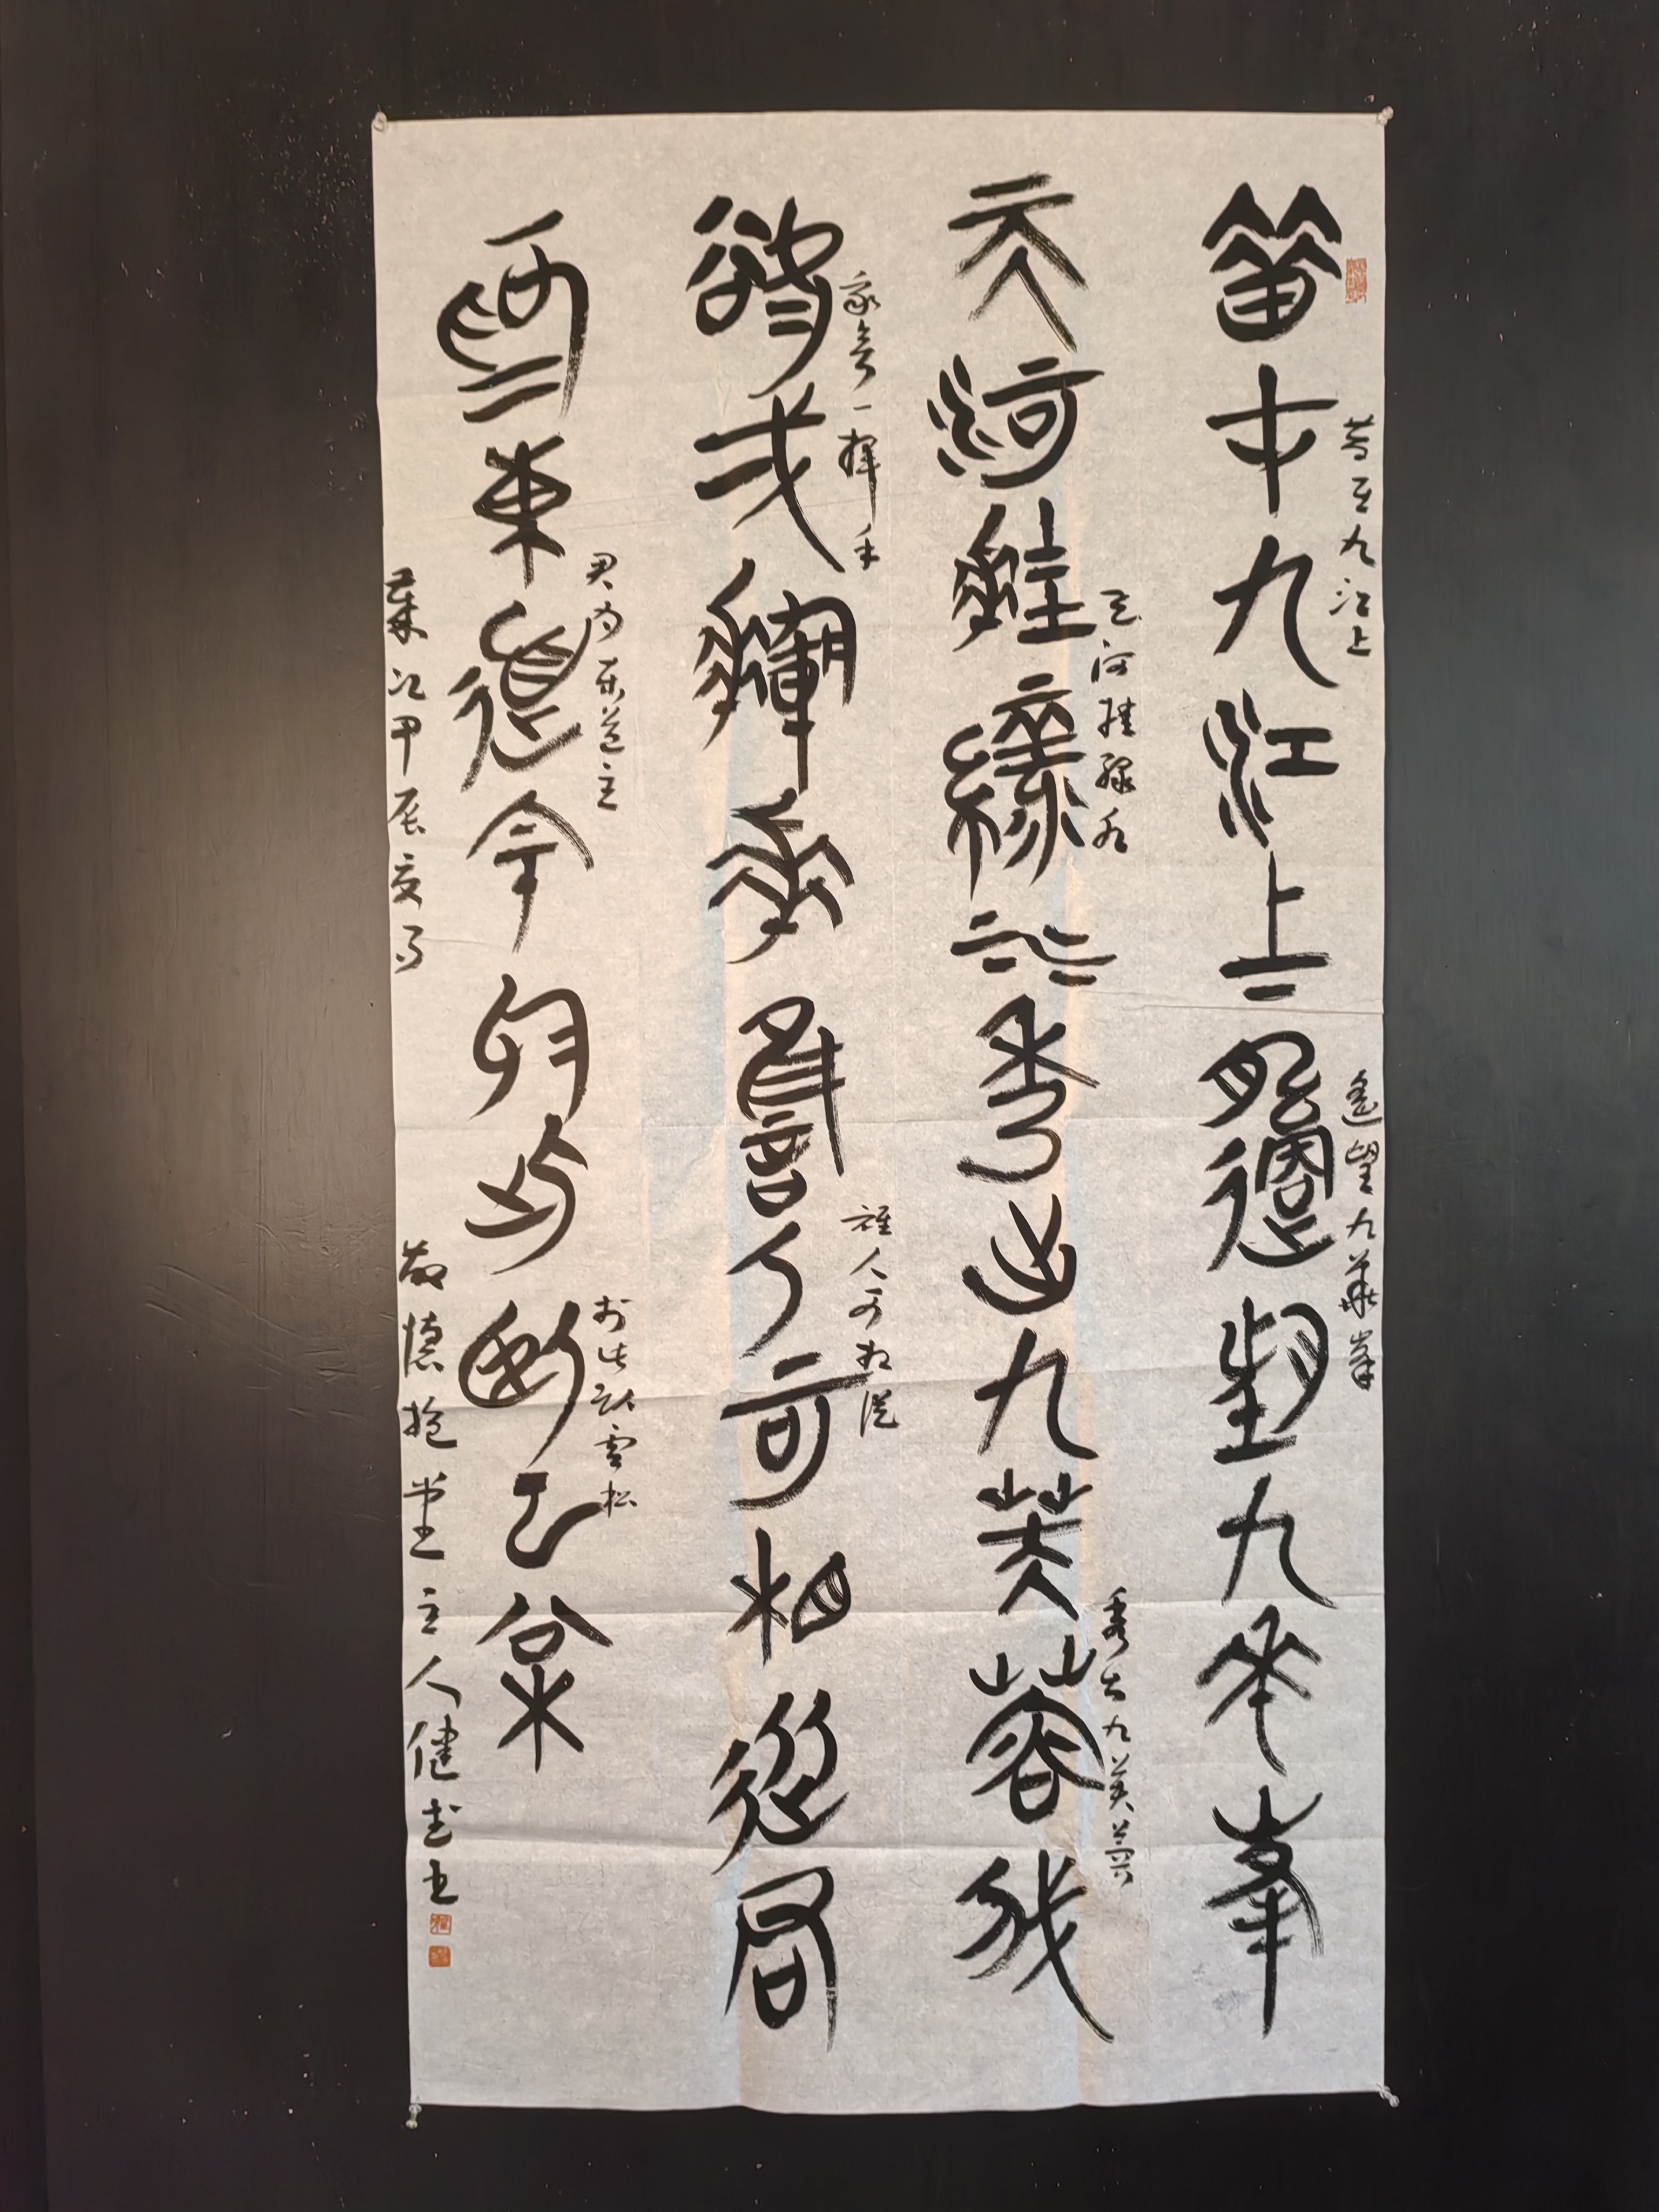 昔在九江上遙望九華峯
昔在九江上
遙望九華峯
天河挂綠水秀出九芙蓉我
天河挂綠水
秀出九芙蓉
欲一揮手誰人可相從君
我欲一揮手
誰人可相從
為東道主於此臥云松
君為東道主
於此臥雲松
歲次甲辰夏月
散懷抱堂主人健书